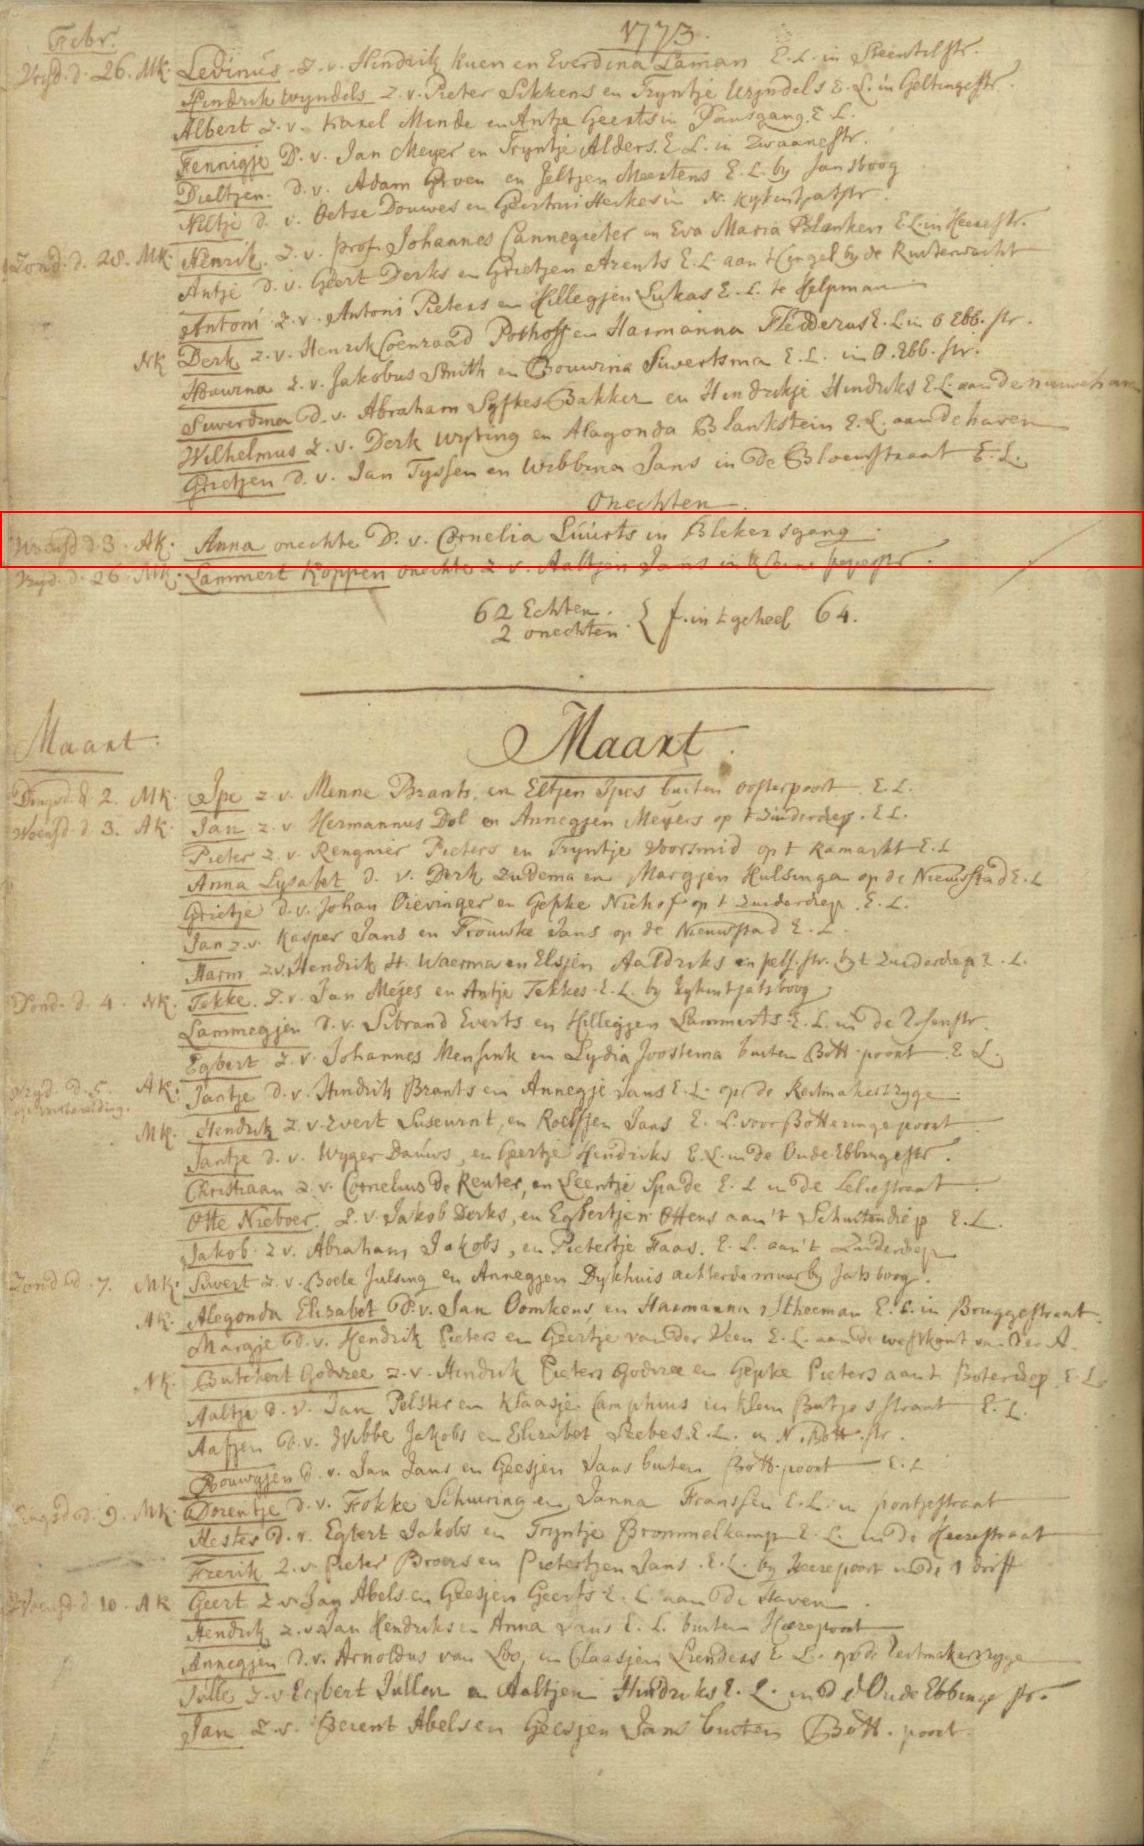 Febr.
1773.
Vryd. d. 26. MK. Levinus. z. v. Hindrik Kuen en Everdina Laman E. L. in Steentilstr.
Hindrik Wyndels z. v. Pieter Sikkens en Tryntje Wyndels E. L. in Geltingestr.
Albert z. v. Harel Mende en Antje Geerts in Pausgang. E L.
Fennigje D. v. Jan Meyer en Tryntje Alders. E L. in Zwaanestr.
Dieltjen. d. v. Adam Groen en Jeltjen Meertens E. L. by Jansboog
Niltje d. v. Oetse Douwes en Geertrui Herkes in N. Kykintjatstr.
Zond. d. 28. MK. Henrik. z. v. prof. Johannes Cannegieter en Eva Maria Blanken E. L. in Heerestr.
Antje d. v. Geert Derks en Grietjen Arents E. L. aan t Cingel by de Ruiterwacht
Antoni z. v. Antoni Pieters en Hillegjen Lukas E. L. te Helpman
NK Derk z. v. Henrik Coenraad Pothoff en Harmanna Fledderus E. L. in O Ebb. str.
Bouwina z. v. Jakobus Smith en Bouwina Siwertsma E. L. in O. Ebb. str.
Siwerdina D. v. Abraham Syfkes Bakker en Hindrikje Hindriks E. L. aan de nieuwe haven
Wilhelmus z. v. Derk Wyring en Alagonda Blankstein E. L. aan de haven
Grietjen d. v. Jan Tyssen en Wibbina Jans in de Bloemstraat E. L.
Onechten.
Woensd. d. 3. AK. Anna onechte D. v. Cornelia Luurts in Blekersgang.
Vryd. d. 26. MK. Lammert Koppen onechte z v. Aaltjen Jans in Kleine pepestr.
62 Echten.
2 onechten. { f. in t geheel 64.
Maart
Maart.
Dingsd. d. 2. MK. Ipe z. v. Menne Brants. en Eltjen Ipes buiten oosterpoort. E. L.
Woensd. d. 3. AK. Jan z. v Hermannus Dol en Annegjen Meyers op t Zuiderdiep. E L.
Pieter z. v. Rengnier Pieters en Tryntje Voorsmid op t Kamarkt E. L
Anna Lysabet d. v. Derk Zudema en Margjen Hulsinga op de Nieuwstad E. L
Grietje d. v. Johan Dievinger en Gepke Niehof op t Zuiderdiep. E. L.
Jan z. v. Kasper Jans en Trouwke Jans op de Nieuwstad E. L.
Harm z. v. Hendrik H. Waerma en Elsjen Aaldriks in pels. str. by t Zuiderdiep E. L.
Dond. d. 4. NK. Tekke. z. v. Jan Meyes en Antje Tekkes E. L. by Kykintjatsboog.
Lammegjen d. v. Sibrand Everts en Hillegjen Lammerts E. L. in de Rosenstr.
Egbert z. v. Johannes Mensink en Lydia Joostema buiten Bott. poort. E L.
Vryd. d. 5. AK. Jantje d. v. Hindrik Brants en Annegje Jans E. L. op de Reitmakersryge
op voorbereiding.
MK. Hendrik z. v. Evert Suseurnt, en Roelfjen Jans E. L. voor Botteringe poort
Jantje d. v. Wyger Dauws, en Geertje Hindriks E. L. in de Oude Ebbingestr.
Christiaan z. v. Cornelius De Reuter, en Leentje Spade E. L in de Leliestraat.
Otte Nieboer. z. v. Jakob Derks, en Egbertjen Ottens aan't Schuitendiep E. L.
Jakob z. v. Abraham Jakobs, en Pietertje Faas. E. L. aan't Zuiderdiep
Zond. d. 7. MK. Siwert z. v. Boele Julsing en Annegjen Dykhuis achter de muur by Jatsboog.
AK. Alegonda Elisabet D. v. Jan Oomkens en Harmanna Stheeman E. L. in Bruggestraat.
Margje d. v. Hendrik Pieters en Geertje van der Veen E. L. aan de westkant van der A.
NK. Butchert Godvree z. v. Hindrik Pieters Godvree en Gepke Pieters aan t Boterdiep. E. L.
Aaltje d. v. Jan Pelster en Klaasje Camphuis in Klein Butjes straat E. L.
Aafjen D. v. Wibbe Jakobs en Elisabet Siebes. E. L. in N. Bott. str.
Bouwgjen d. v. Jan Jans en Geesjen Jans buiten Bott. poort E. L
Dingsd. d. 9. MK. Dorentje d. v. Fokke Schuring en Janna Franssen E. L. in pontjestraat
Hester d. v. Egbert Jakobs en Tryntje Brommelkamp E. L. in de Heerestraat
Frerik z. v. Pieter Broers en Pietertjen Jans. E. L. by Heerepoort in de 1 drift
Woensd. d. 10. AK Geert z. v. Jan Abels en Geesjen Geerts E. L. aan de Haven.
Hendrik z. v. Jan Hendriks en Anna Jans E. L. buiten Heerepoort
Annegjen d. v. Arnoldus van Loo, en Claasjen Lienders E. L. op de Reitmakersryge
Julle z. v. Egbert Jullen en Aaltjen Hindriks E. L. in de Oude Ebbinge str.
Jan z. v. Berent Abels en Geesjen Jans buiten Bott. poort.